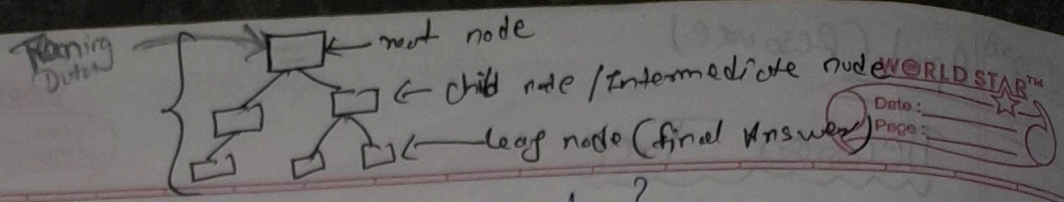 root node
child node / Intermediate node
leaf node (final Answer)
WORLD STAR™
Date :
Page :